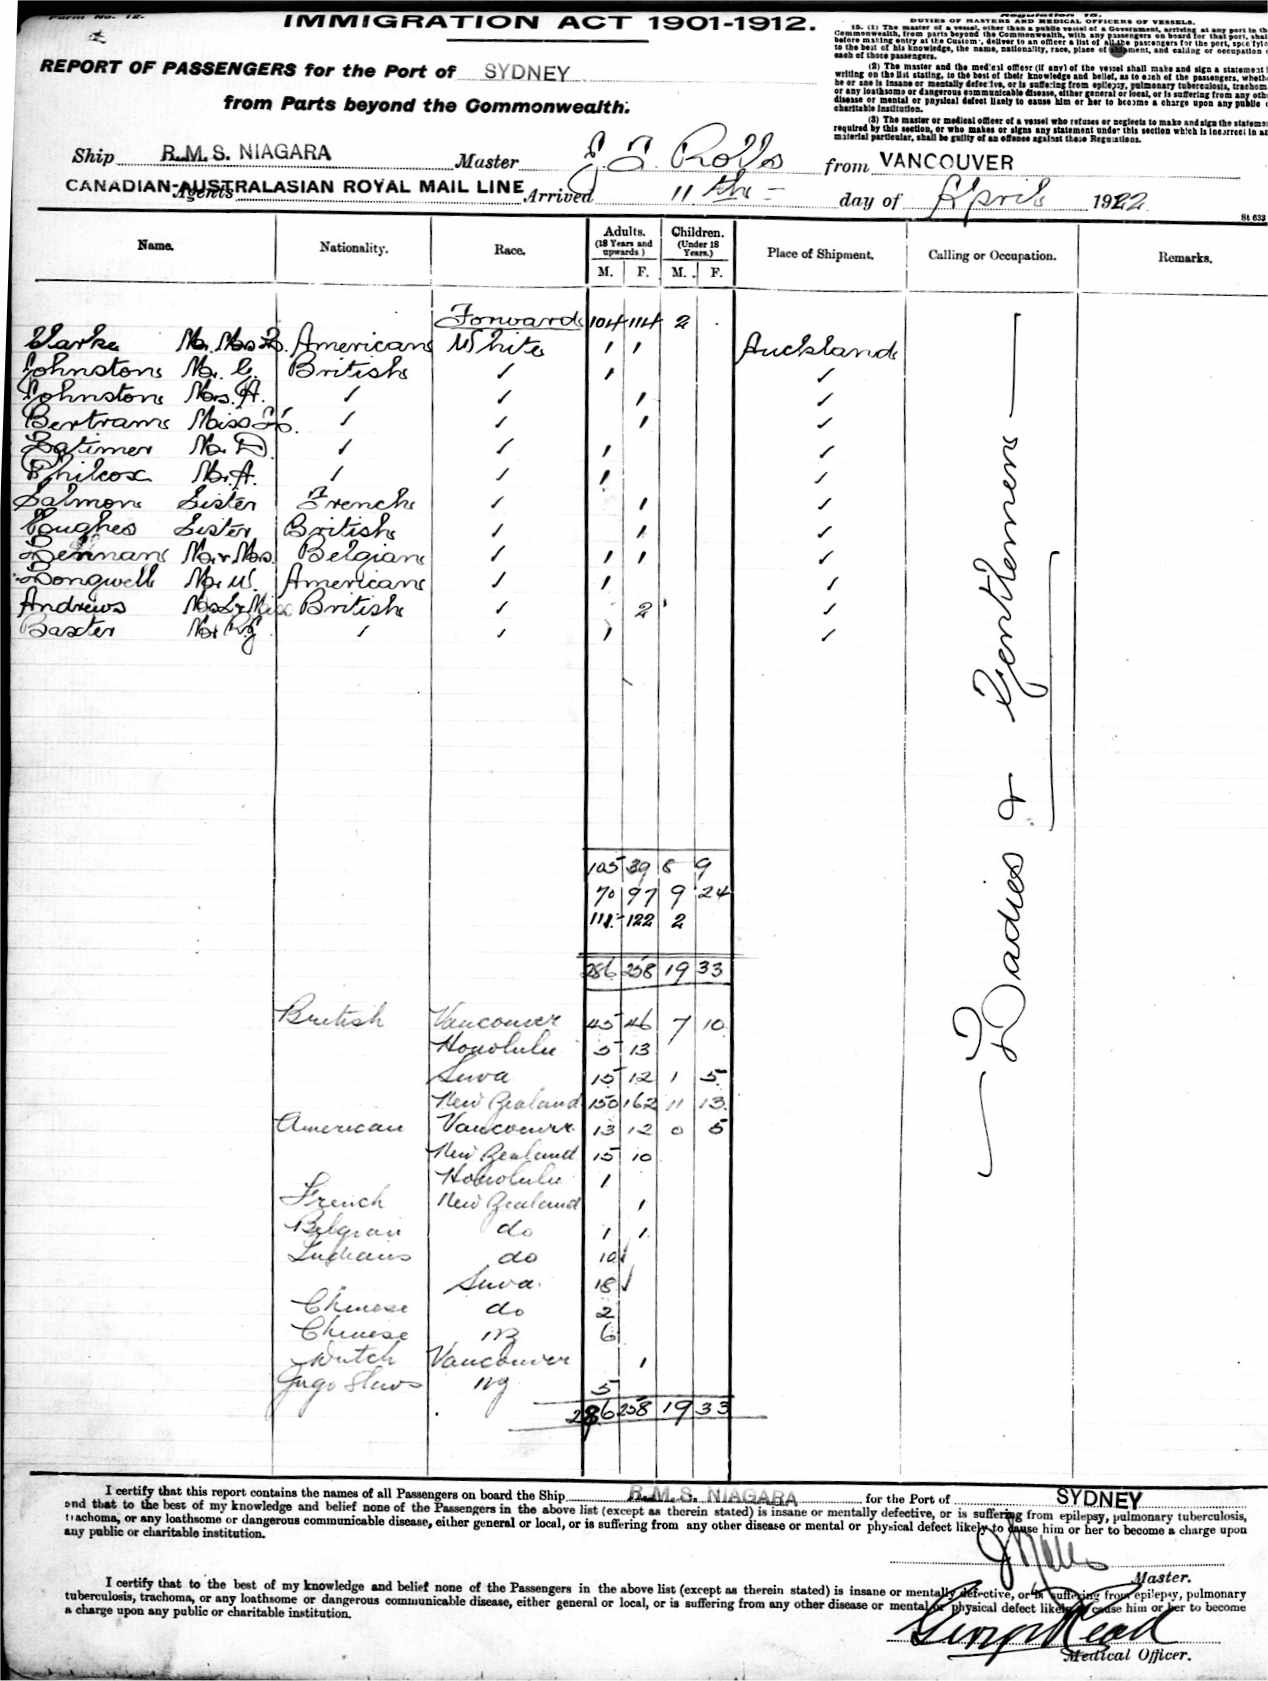 Form No. 12.
IMMIGRATION ACT 1901-1912.
REPORT OF PASSENGERS for the Port of SYDNEY
from Parts beyond the Commonwealth.
Regulation 15.
DUTIES OF MASTERS AND MEDICAL OFFICERS OF VESSELS.
15. (1) The master of a vessel, other than a public vessel of a Government, arriving at any port in the
Commonwealth, from parts beyond the Commonwealth, with any passengers on board for that port, shall
before making entry at the Customs, deliver to an officer a list of all the passengers for the port, specifying
to the best of his knowledge, the name, nationality, race, place of shipment, and calling or occupation
each of those passengers.
(2) The master and the medical officer (if any) of the vessel shall make and sign a statement
writing on the list stating, to the best of their knowledge and belief, as to each of the passengers, whether
he or she is insane or mentally defective, or is suffering from epilepsy, pulmonary tuberculosis, trachoma,
or any loathsome or dangerous communicable disease, either general or local, or is suffering from any other
disease or mental or physical defect likely to cause him or her to become a charge upon any public
charitable institution.
(3) The master or medical officer of a vessel who refuses or neglects to make and sign the statement
required by this section, or who makes or signs any statement under this section which is incorrect in
material particular, shall be guilty of an offence against these Regulations.
Ship R.M.S. NIAGARA Master J. T. Rolls from VANCOUVER
CANADIAN-AUSTRALASIAN ROYAL MAIL LINE Agents Arrived 11th day of April 1922
St 633
Name. Nationality. Race. Adults. (18 Years and upwards) M. F. Children. (Under 18 Years.) M. F. Place of Shipment. Calling or Occupation. Remarks.
Forward 104 114 2
Clarke Mr. Mrs American White 1 1 Auckland
Johnston Mr. C. British ✓ 1 ✓
Johnston Mrs. A. ✓ ✓ 1 ✓
Bertram Miss ✓ ✓ 1 ✓
Latimer Mr. D. ✓ ✓ 1 ✓
Philcox Mr. A. ✓ ✓ 1 ✓
Salmon Sister French ✓ 1 ✓
Hughes Sister British ✓ 1 ✓
Mr & Mrs Belgian ✓ 1 1 ✓
Longwell Mr. W. American ✓ 1 ✓
Andrews Mrs & Miss British ✓ 2 ✓
Baxter Mr. R.J. ✓ ✓ 1 ✓
Ladies & Gentlemen
105 39 8 9
70 97 9 24
111 122 2
286 258 19 33
British Vancouver 45 46 7 10
Honolulu 5 13
Suva 15 12 1 5
New Zealand 150 162 11 13
American Vancouver 13 12 0 5
New Zealand 15 10
Honolulu 1
French New Zealand 1
Belgian do 1 1
Indians do 10 ✓
Suva 18 ✓
Chinese do 2
Chinese NZ 6
Dutch Vancouver 1
Jugo Slavs NZ 5
286 258 19 33
I certify that this report contains the names of all Passengers on board the Ship R.M.S. NIAGARA for the Port of SYDNEY
and that to the best of my knowledge and belief none of the Passengers in the above list (except as therein stated) is insane or mentally defective, or is suffering from epilepsy, pulmonary tuberculosis,
trachoma, or any loathsome or dangerous communicable disease, either general or local, or is suffering from any other disease or mental or physical defect likely to cause him or her to become a charge upon
any public or charitable institution.
J Rolls
Master.
I certify that to the best of my knowledge and belief none of the Passengers in the above list (except as therein stated) is insane or mentally defective, or is suffering from epilepsy, pulmonary
tuberculosis, trachoma, or any loathsome or dangerous communicable disease, either general or local, or is suffering from any other disease or mental or physical defect likely to cause him or her to become
a charge upon any public or charitable institution.
George Read
Medical Officer.